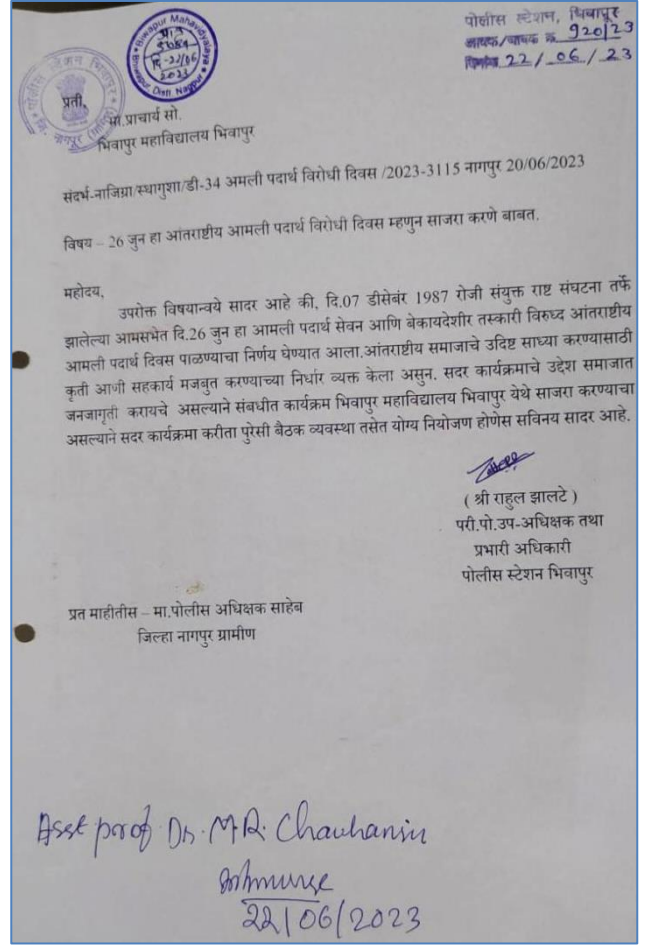 पोलीस स्टेशन, भिवापूर
जावक/वाचक क्र 920/23
दिनांक 22/06/23
Biwapur Mahavidyalaya
Bhiwapur Distt Nagpur
दि-22/06
2023
पोलीस स्टेशन भिवापूर
जि. नागपूर (ग्रामिण)
प्रती,
मा.प्राचार्य सो.
भिवापुर महाविद्यालय भिवापुर
संदर्भ-नाजिग्रा/स्थागुशा/डी-34 अमली पदार्थ विरोधी दिवस /2023-3115 नागपुर 20/06/2023
विषय – 26 जुन हा आंतराष्टीय आमली पदार्थ विरोधी दिवस म्हणुन साजरा करणे बाबत.
महोदय,
उपरोक्त विषयान्वये सादर आहे की, दि.07 डीसेबंर 1987 रोजी संयुक्त राष्ट संघटना तर्फे
झालेल्या आमसभेत दि.26 जुन हा आमली पदार्थ सेवन आणि बेकायदेशीर तस्कारी विरुध्द आंतराष्टीय
आमली पदार्थ दिवस पाळण्याचा निर्णय घेण्यात आला.आंतराष्टीय समाजाचे उदिष्ट साध्या करण्यासाठी
कृती आणी सहकार्य मजबुत करण्याच्या निर्धार व्यक्त केला असुन. सदर कार्यक्रमाचे उद्देश समाजात
जनजागृती करायचे असल्याने संबधीत कार्यक्रम भिवापुर महाविद्यालय भिवापुर येथे साजरा करण्याचा
असल्याने सदर कार्यक्रमा करीता पुरेसी बैठक व्यवस्था तसेत योग्य नियोजण होणेस सविनय सादर आहे.
( श्री राहुल झालटे )
परी.पो.उप-अधिक्षक तथा
प्रभारी अधिकारी
पोलीस स्टेशन भिवापुर
प्रत माहीतीस – मा.पोलीस अधिक्षक साहेब
जिल्हा नागपुर ग्रामीण
Asst prof Dr. M.R. Chauhan
22/06/2023